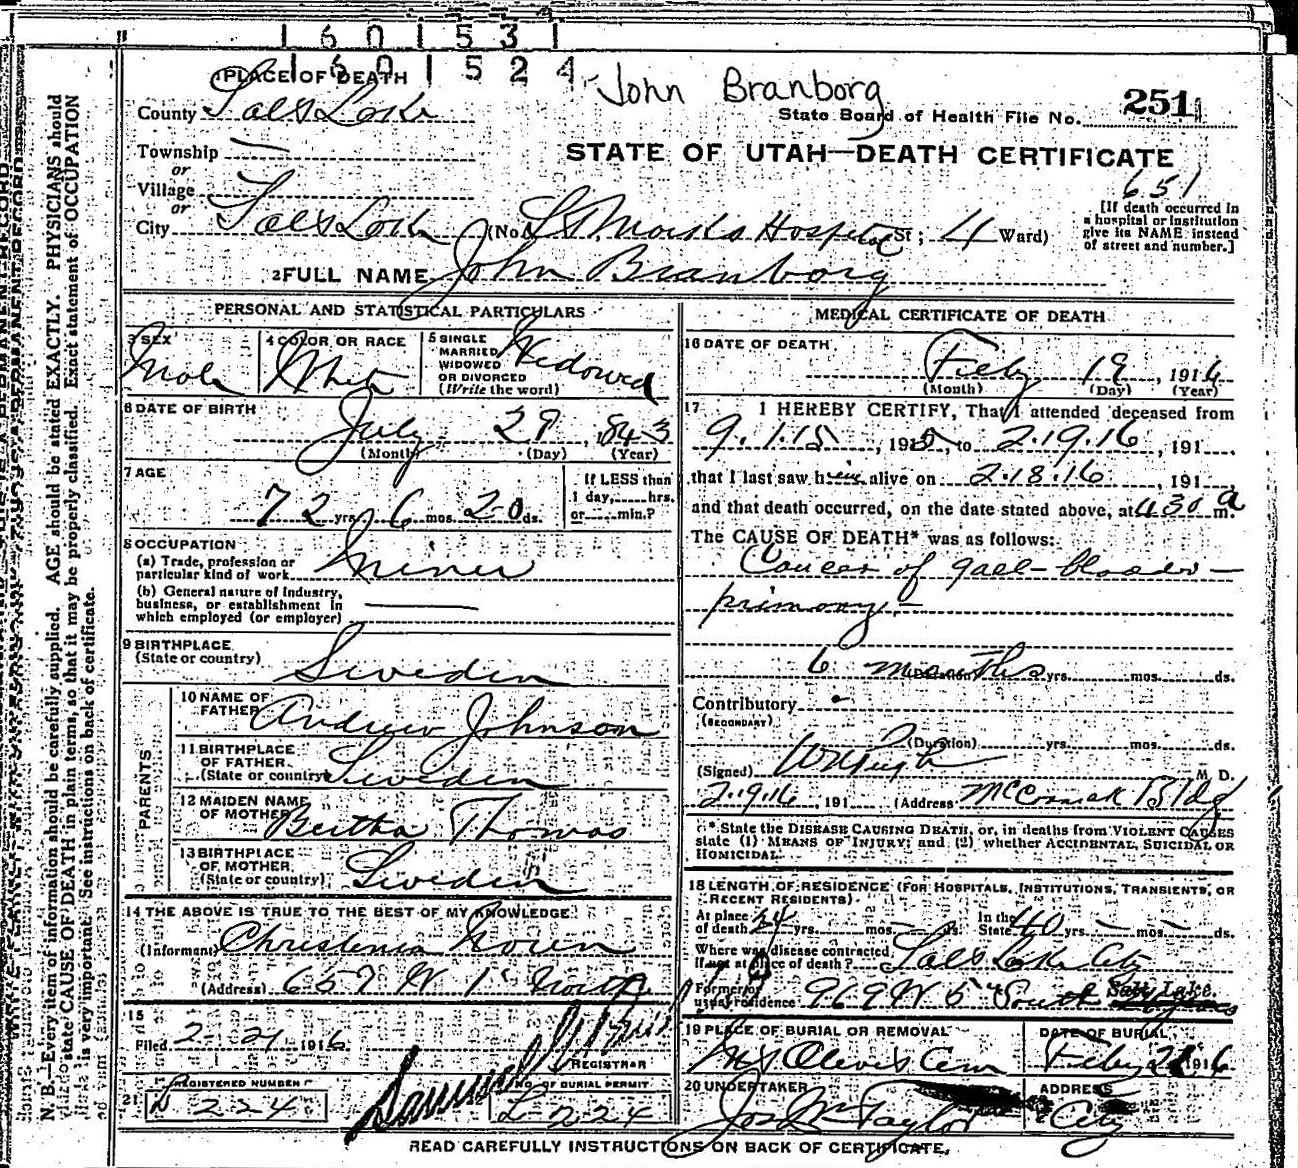 1601531
1601524
John Branborg
1 PLACE OF DEATH
County Salt Lake
State Board of Health File No. 251
Township
or
Village
or
STATE OF UTAH—DEATH CERTIFICATE
651
City Salt Lake (No. St. Marks Hospital St; 4 Ward)
[If death occurred in a hospital or institution give its NAME instead of street and number.]
2 FULL NAME John Branborg
PERSONAL AND STATISTICAL PARTICULARS
3 SEX Male
4 COLOR OR RACE White
5 SINGLE MARRIED WIDOWED OR DIVORCED (Write the word) Widowed
6 DATE OF BIRTH July 29, 843
(Month) (Day) (Year)
7 AGE 72 yrs 6 mos 20 ds.
If LESS than 1 day, hrs. or min.?
8 OCCUPATION
(a) Trade, profession or particular kind of work Miner
(b) General nature of industry, business, or establishment in which employed (or employer)
9 BIRTHPLACE (State or country) Sweden
PARENTS
10 NAME OF FATHER Andrew Johnson
11 BIRTHPLACE OF FATHER (State or country) Sweden
12 MAIDEN NAME OF MOTHER Bertha Thomas
13 BIRTHPLACE OF MOTHER (State or country) Sweden
14 THE ABOVE IS TRUE TO THE BEST OF MY KNOWLEDGE
(Informant)
(Address) 657 W 1st North
15
Filed 2 21 1916
REGISTRAR
REGISTERED NUMBER 224
NO. OF BURIAL PERMIT 224
MEDICAL CERTIFICATE OF DEATH
16 DATE OF DEATH Feby 19, 1916
(Month) (Day) (Year)
17 I HEREBY CERTIFY, That I attended deceased from
9.1.15, 1915, to 2.19.16, 191
that I last saw him alive on 2.18.16, 191
and that death occurred, on the date stated above, at 430 a m.
The CAUSE OF DEATH* was as follows:
Cancer of gall-bladder—
primary—
6 months yrs. mos. ds.
Contributory
(SECONDARY)
(Duration) yrs. mos. ds.
(Signed) M. D.
2.19.16, 191 (Address) McCornick Bldg
* State the DISEASE CAUSING DEATH, or, in deaths from VIOLENT CAUSES state (1) MEANS OF INJURY; and (2) whether ACCIDENTAL, SUICIDAL OR HOMICIDAL.
18 LENGTH OF RESIDENCE (FOR HOSPITALS, INSTITUTIONS, TRANSIENTS, OR RECENT RESIDENTS)
At place of death 24 yrs. mos. ds. In the State 40 yrs. mos. ds.
Where was disease contracted, If not at place of death? Salt Lake City
Former or usual residence 969 W 5th South Salt Lake
19 PLACE OF BURIAL OR REMOVAL Mt Olivet Cem
DATE OF BURIAL Feby 1916
20 UNDERTAKER Jos Wm Taylor
ADDRESS City
READ CAREFULLY INSTRUCTIONS ON BACK OF CERTIFICATE.
N. B.—Every item of information should be carefully supplied. AGE should be stated EXACTLY. PHYSICIANS should
state CAUSE OF DEATH in plain terms, so that it may be properly classified. Exact statement of OCCUPATION
is very important. See instructions on back of certificate.